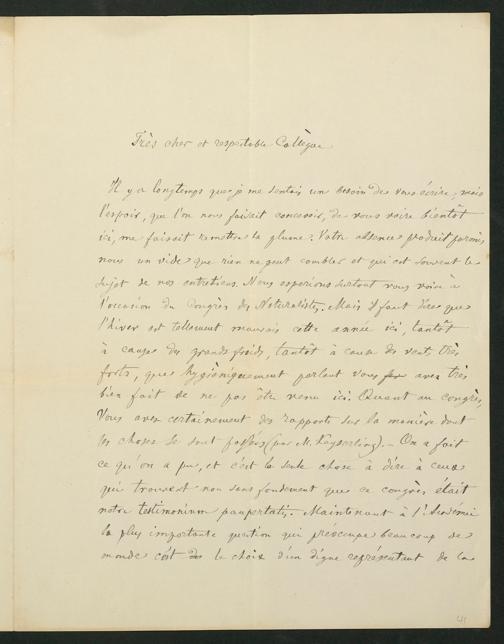 Très cher et respectable Collègue
Il y a longtemps que je me sentais un besoin de vous écrire; mais
l'espoir, que l'on nous faisait concevoir, de vous voire bientôt
ici, me faisait remettre la plume. Votre absence produit parmi
nous un vide que rien ne peut combler et qui est souvent le
sujet de nos entretiens. Nous esperions surtout vous voir à
l'occasion du Congrès des Naturalistes. Mais il faut dire que
l'hiver est tellement mauvais cette année ici, tantôt
à cause des grands froids, tantôt à cause des vents très
forts, que hygiéniquement parlant vous avez très
bien fait de ne pas être venu ici. Quant au congrès,
Vous avez certainement des rapports sur la manière dont
les choses se sont passées (par M. Keyserling). – On a fait
ce qu'on a pu, et c'est la seule chose à dire à ceux
qui trouvent non sans fondement que ce congrès était
notre testimonium paupertatis. Maintenant à l'Academie
la plus importante question qui préoccupe beaucoup de
monde c'est le choix d'un digne représentant de la